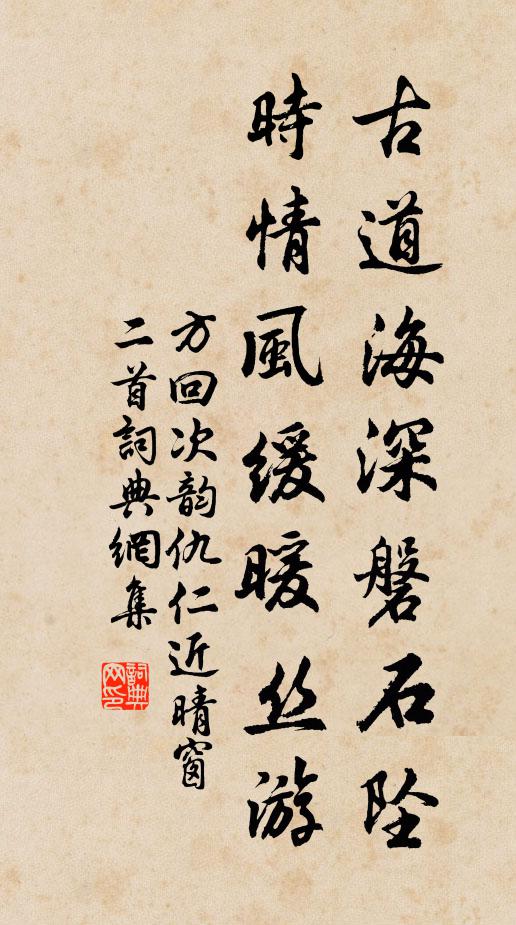 古道海深磐石坠
時情風緩暖丝游
方回次韵仇仁近晴窗
二首詞典網集
詞典
网印